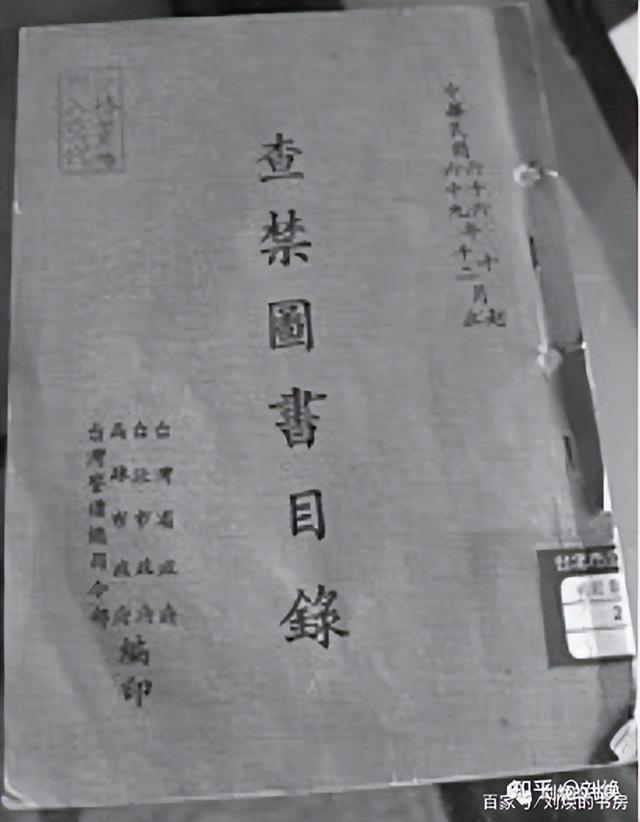 中華民國六十六年十月起
六十九年十二月止
查禁圖書目錄
台灣省政府
台北市政府
高雄市政府
台灣警備總司令部
編印
2
知乎 @刘焕
百家号/刘焕的书房